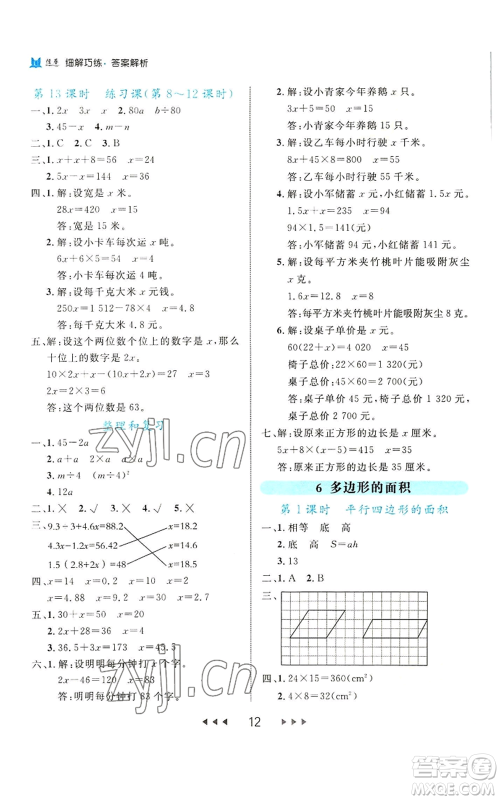 练巷 细解巧练·答案解析
第13课时 练习课(第8~12课时)
一、1.2x 3x x 2.80a b÷180
3.45-x 4.m
二、1.C 2.C 3.B
三、1.x+x+8=56 x=24
2.x+5x-x=180 x=36
四、1.解:设宽是x米。
28x=420 x=15
答:宽是15米。
2.解:设小卡车每次运x吨。
6x+6×5=54 x=4
答:小卡车每次运4吨。
3.解:设每千克大米x元。
答:每千克大米
五、解:设这个两位数个位上的数字是x,那么
十位上的数字是2x。
10×2x+x=2x+10x+27
x=3
答:这个两位数是63。
整理和复习
一、1.45-2a
2.a+a a×a 3.(m÷4)²
4.12a
二、1.× 2.√ 3.× 4.√
三、9.3+3+4.6x=88.2 x=18.9
4.1x-0.9x=56.42 x=16.8
1.5(2.8+4x)=72 x=18.2
四、1.x=14 2.x=0.3
五、1.30+x=82 x=52
2.x+x÷2=36 x=24
3.36.5+3x=62 x=8.5
六、1.解:设明明每分钟打x个字。
2x-46=120 x=83
答:明明每分钟打83个字。
2.解:设小青家今年养鹅x只。
3x+6=78 x=24
答:小青家今年养鹅24只。
3.解:设乙车每小时行驶x千米。
6x+75×6=960 x=85
答:乙车每小时行驶85千米。
4.解:设小军储蓄x元,小红储蓄1.5x元。
1.5x+x=235 x=94
94×1.5=141(元)
答:小军储蓄94元,小红储蓄141元。
5.解:设每平方米夹竹桃叶片能吸附灰尘
x克。
答:每平方米夹竹桃叶片能吸附灰尘8克。
6.解:设桌子单价是x元。
60(22+x)=4020 x=45
椅子总价1320元,桌子总价2700元。
答:椅子总价1320元,桌子总价2700元。
七、解:设原来正方形的边长是x米。
5x+8x=455 x=35
答:原来正方形的边长是35米。
6 多边形的面积
第1课时 平行四边形的面积
一、1.相等 底 高
2.底 高 S=ah
3.13
二、1.A 2.B
三、
四、1.24×15=360(cm²)
2.4×8=32(cm²)
12
zyjl.cn
zyjl.cn